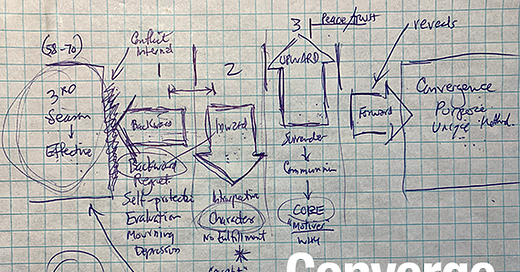 (58-70)
Conflict
Internal
3
Peace/trust
reveals
1
2
UPWARD
3RD
Season
Effective
Backward
Inward
Forward
Convergence
Purpose
Unique
Backward
Regret
Self-protection
Evaluation
Mourning
Depression
Introspective
Character
No fulfillment
Surrender
Communion
CORE
"Motives"
WHY
Converge